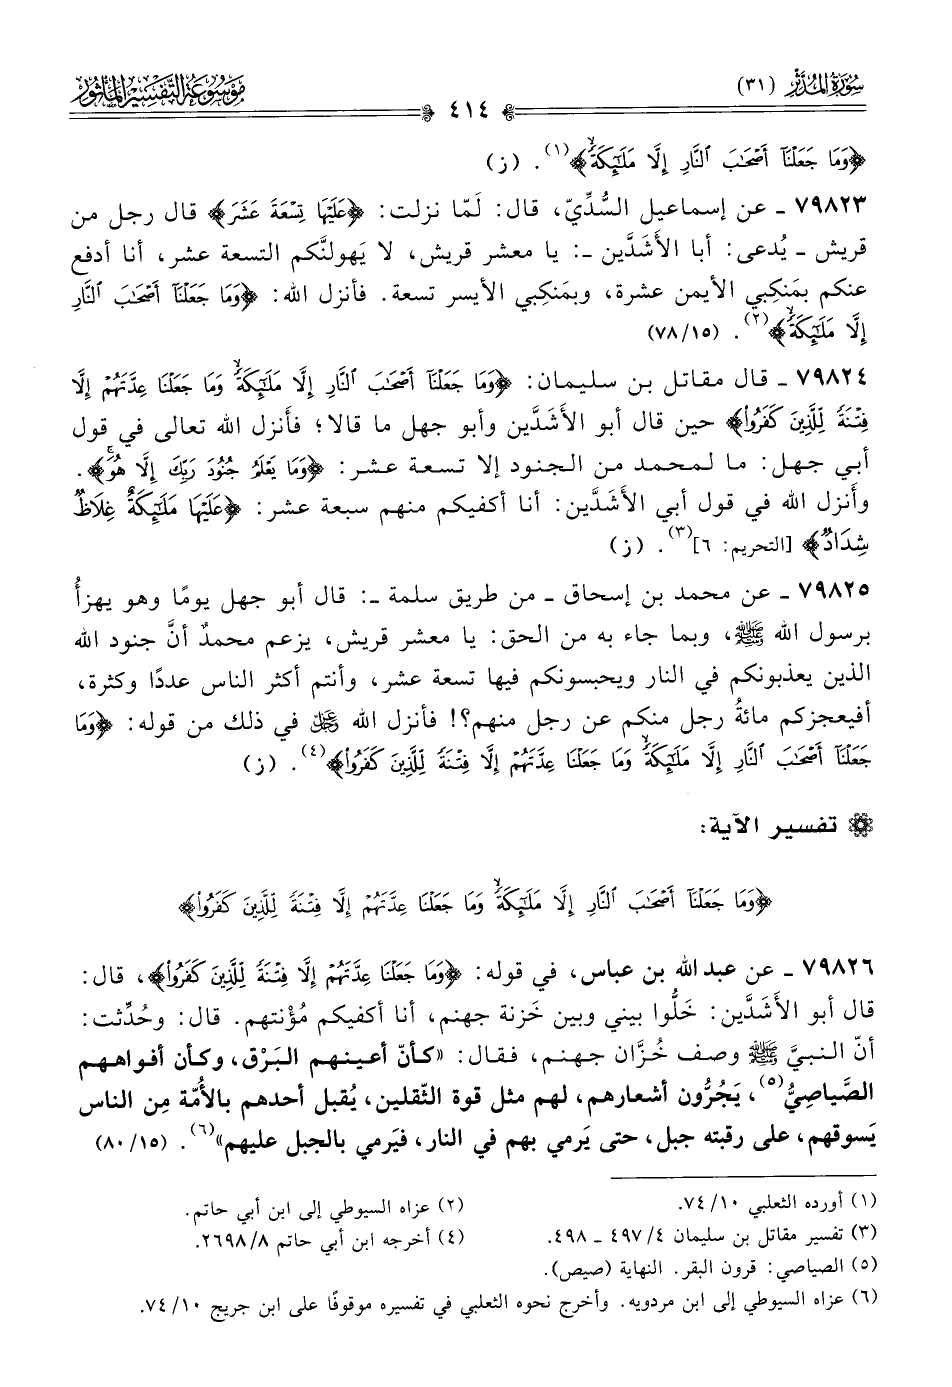 سُورَةُ المُدَّثِّر (٣١)
٤١٤
مَوْسُوعَةُ التَّفْسِيرِ المَأْثُور
﴿وَمَا جَعَلْنَآ أَصْحَٰبَ ٱلنَّارِ إِلَّا مَلَٰٓئِكَةً ۙ﴾(١). (ز)
٧٩٨٢٣ ـ عن إسماعيل السُّدِّيّ، قال: لَمّا نزلت: ﴿عَلَيْهَا تِسْعَةَ عَشَرَ﴾ قال رجل من
قريش ـ يُدعى: أبا الأَشَدَّين ـ: يا معشر قريش، لا يَهولنَّكم التسعة عشر، أنا أدفع
عنكم بمَنكِبي الأيمن عشرة، وبمَنكِبي الأيسر تسعة. فأنزل الله: ﴿وَمَا جَعَلْنَآ أَصْحَٰبَ ٱلنَّارِ
إِلَّا مَلَٰٓئِكَةً ۙ﴾(٢). (٧٨/١٥)
٧٩٨٢٤ ـ قال مقاتل بن سليمان: ﴿وَمَا جَعَلْنَآ أَصْحَٰبَ ٱلنَّارِ إِلَّا مَلَٰٓئِكَةً ۙ وَمَا جَعَلْنَا عِدَّتَهُمْ إِلَّا
فِتْنَةً لِّلَّذِينَ كَفَرُوا۟﴾ حين قال أبو الأَشَدَّين وأبو جهل ما قالا؛ فأنزل الله تعالى في قول
أبي جهل: ما لمحمد من الجنود إلا تسعة عشر: ﴿وَمَا يَعْلَمُ جُنُودَ رَبِّكَ إِلَّا هُوَ ۚ﴾.
وأَنزل الله في قول أبي الأَشَدَّين: أنا أكفيكم منهم سبعة عشر: ﴿عَلَيْهَا مَلَٰٓئِكَةٌ غِلَاظٌ
شِدَادٌ﴾ [التحريم: ٦](٣). (ز)
٧٩٨٢٥ ـ عن محمد بن إسحاق ـ من طريق سلمة ـ: قال أبو جهل يومًا وهو يهزأُ
برسول الله ﷺ، وبما جاء به من الحق: يا معشر قريش، يزعم محمدٌ أنَّ جنود الله
الذين يعذبونكم في النار ويحبسونكم فيها تسعة عشر، وأنتم أكثر الناس عددًا وكثرة،
أفيعجزكم مائةُ رجل منكم عن رجل منهم؟! فأنزل الله ﷻ في ذلك من قوله: ﴿وَمَا
جَعَلْنَآ أَصْحَٰبَ ٱلنَّارِ إِلَّا مَلَٰٓئِكَةً ۙ وَمَا جَعَلْنَا عِدَّتَهُمْ إِلَّا فِتْنَةً لِّلَّذِينَ كَفَرُوا۟﴾(٤). (ز)
تفسير الآية:
﴿وَمَا جَعَلْنَآ أَصْحَٰبَ ٱلنَّارِ إِلَّا مَلَٰٓئِكَةً ۙ وَمَا جَعَلْنَا عِدَّتَهُمْ إِلَّا فِتْنَةً لِّلَّذِينَ كَفَرُوا۟﴾
٧٩٨٢٦ ـ عن عبد الله بن عباس، في قوله: ﴿وَمَا جَعَلْنَا عِدَّتَهُمْ إِلَّا فِتْنَةً لِّلَّذِينَ كَفَرُوا۟﴾، قال:
قال أبو الأَشَدَّين: خَلُّوا بيني وبين خَزنة جهنم، أنا أكفيكم مُؤْنتهم. قال: وحُدِّثت:
أنّ النبيَّ ﷺ وصف خُزَّان جهنم، فقال: «كأنّ أعينهم البَرْق، وكأن أفواههم
الصَّياصِيُّ(٥)، يَجُرُّون أشعارهم، لهم مثل قوة الثّقلين، يُقبل أحدهم بالأُمّة مِن الناس
يَسوقهم، على رقبته جبل، حتى يَرمي بهم في النار، فيَرمي بالجبل عليهم»(٦). (٨٠/١٥)
(١) أورده الثعلبي ٧٤/١٠.
(٢) عزاه السيوطي إلى ابن أبي حاتم.
(٣) تفسير مقاتل بن سليمان ٤٩٧/٤ ـ ٤٩٨.
(٤) أخرجه ابن أبي حاتم ٢٦٩٨/٨.
(٥) الصياصي: قرون البقر. النهاية (صيص).
(٦) عزاه السيوطي إلى ابن مردويه. وأخرج نحوه الثعلبي في تفسيره موقوفًا على ابن جريج ٧٤/١٠.